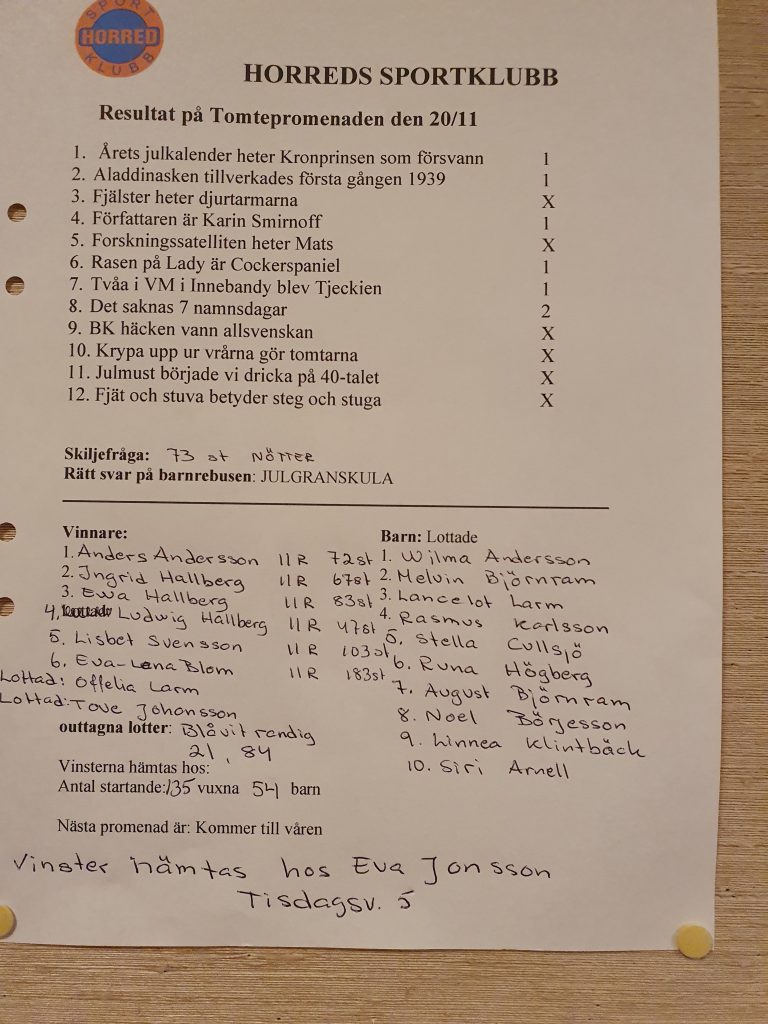 SPORT
HORRED
KLUBB
HORREDS SPORTKLUBB
Resultat på Tomtepromenaden den 20/11
1. Årets julkalender heter Kronprinsen som försvann 1
2. Aladdinasken tillverkades första gången 1939 1
3. Fjälster heter djurtarmarna X
4. Författaren är Karin Smirnoff 1
5. Forskningssatelliten heter Mats X
6. Rasen på Lady är Cockerspaniel 1
7. Tvåa i VM i Innebandy blev Tjeckien 1
8. Det saknas 7 namnsdagar 2
9. BK häcken vann allsvenskan X
10. Krypa upp ur vrårna gör tomtarna X
11. Julmust började vi dricka på 40-talet X
12. Fjät och stuva betyder steg och stuga X
Skiljefråga: 73 st NÖTTER
Rätt svar på barnrebusen: JULGRANSKULA
Vinnare:
1. Anders Andersson 11 R 72st
2. Ingrid Hallberg 11 R 67st
3. Ewa Hallberg 11 R 83st
4. Ludwig Hallberg 11 R 47st
5. Lisbet Svensson 11 R 103st
6. Eva-Lena Blom 11 R 183st
Lottad: Offelia Larm
Lottad: Tove Johansson
outtagna lotter: Blåvit randig
21, 84
Vinsterna hämtas hos:
Antal startande: 135 vuxna 54 barn
Nästa promenad är: Kommer till våren
Barn: Lottade
1. Wilma Andersson
2. Melvin Björnram
3. Lancelot Larm
4. Rasmus Karlsson
5. Stella Cullsjö
6. Runa Högberg
7. August Björnram
8. Noel Börjesson
9. Linnea Klintbäck
10. Siri Arnell
Vinster hämtas hos Eva Jonsson
Tisdagsv. 5